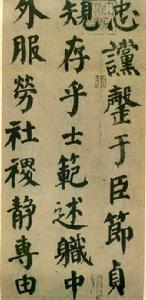 忠讜罄于臣節貞
規存乎士範述職中
外服勞社稷静專由